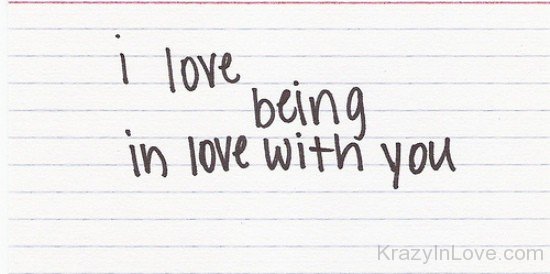 i love
being
in love with you
KrazyInLove.com